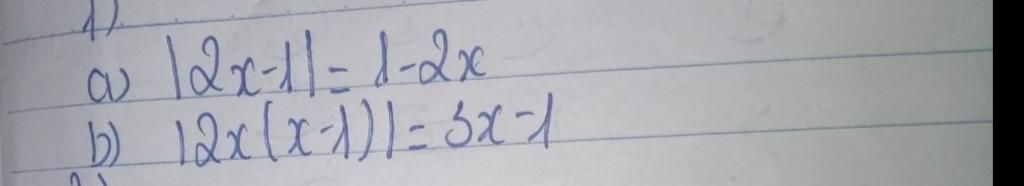 1)
a) |2x-1| = 1-2x
b) |2x(x-1)| = 3x-1